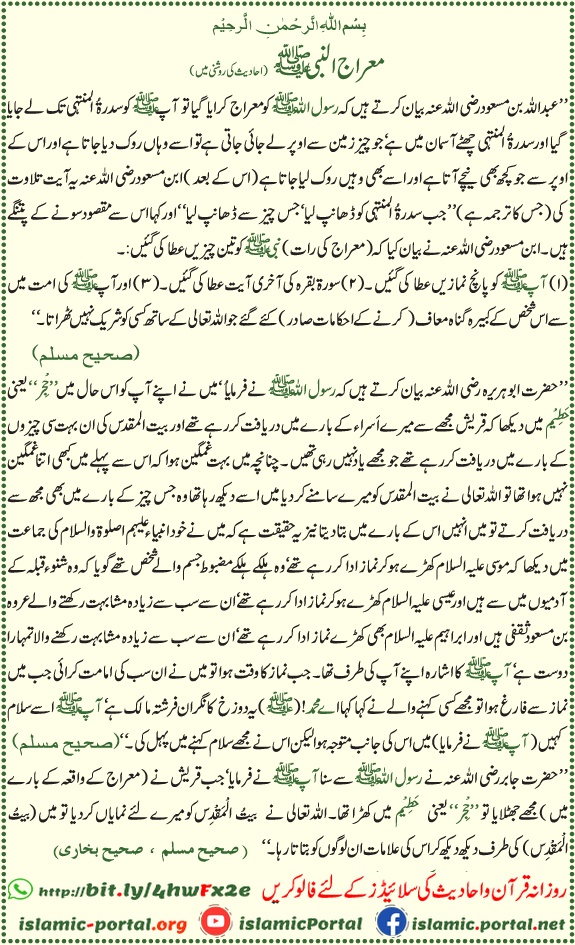 بِسْمِ اللهِ الرَّحْمٰنِ الرَّحِيْمِ
معراج النبی ﷺ (احادیث کی روشنی میں)
’’عبداللہ بن مسعود رضی اللہ عنہ بیان کرتے ہیں کہ رسول اللہ ﷺ کو معراج کرایا گیا تو آپ ﷺ کو سدرۃُ المنتہی تک لے جایا
گیا اور سدرۃُ المنتہی چھٹے آسمان میں ہے‘ جو چیز زمین سے اوپر لے جائی جاتی ہے تو اسے وہاں روک دیا جاتا ہے اور اس کے
اوپر سے جو کچھ بھی نیچے آتا ہے اور اسے بھی وہیں روک لیا جاتا ہے (اس کے بعد) ابن مسعود رضی اللہ عنہ یہ آیت تلاوت
کی (جس کا ترجمہ ہے) ’’جب سدرۃُ المنتہی کو ڈھانپ لیا‘ جس چیز سے ڈھانپ لیا‘‘ اور کہا اس سے مقصود سونے کے پتنگے
ہیں۔ ابن مسعود رضی اللہ عنہ نے بیان کیا کہ (معراج کی رات) نبی ﷺ کو تین چیزیں عطا کی گئیں:۔
(۱) آپ ﷺ کو پانچ نمازیں عطا کی گئیں۔ (۲) سورۃ بقرہ کی آخری آیت عطا کی گئیں۔ (۳) اور آپ ﷺ کی امت میں
سے اس شخص کے کبیرہ گناہ معاف (کرنے کے احکامات صادر) کئے گئے جو اللہ تعالی کے ساتھ کسی کو شریک نہیں ٹھراتا۔‘‘
(صحیح مسلم)
’’حضرت ابوہریرہ رضی اللہ عنہ بیان کرتے ہیں کہ رسول اللہ ﷺ نے فرمایا‘ میں نے اپنے آپ کو اس حال میں ’’حِجْر‘‘ یعنی
حَطِیْم میں دیکھا کہ قریش مجھے سے میرے اَسراء کے بارے میں دریافت کر رہے تھے اور بیت المقدس کی ان بہت سی چیزوں
کے بارے میں دریافت کر رہے تھے جو مجھے یاد نہیں رہی تھیں۔ چنانچہ میں بہت غمگین ہوا کہ اس سے پہلے میں کبھی اتنا غمگین
نہیں ہوا تھا تو اللہ تعالی نے بیت المقدس کو میرے سامنے کر دیا میں اسے دیکھ رہا تھا وہ جس چیز کے بارے میں بھی مجھ سے
دریافت کرتے تو میں انہیں اس کے بارے میں بتا دیتا نیز یہ حقیقت ہے کہ میں نے خود انبیاء علیہم اصلوۃ والسلام کی جماعت
میں دیکھا کہ موسی علیہ السلام کھڑے ہوکر نماز ادا کر رہے تھے‘ وہ ہلکے ہلکے مضبوط جسم والے شخص تھے گویا کہ وہ شنوء قبلہ کے
آدمیوں میں سے ہیں اور عیسی علیہ السلام کھڑے ہوکر نماز ادا کر رہے تھے‘ ان سے سب سے زیادہ مشابہت رکھتے والے عروہ
بن مسعود ثقفی ہیں اور ابراہیم علیہ السلام بھی کھڑے نماز ادا کر رہے تھے‘ ان سے سب سے زیادہ مشابہت رکھنے والا تمہارا
دوست ہے‘ آپ ﷺ کا اشارہ اپنے آپ کی طرف تھا۔ جب نماز کا وقت ہوا تو میں نے ان سب کی امامت کرائی جب میں
نماز سے فارغ ہوا تو مجھے کسی کہنے والے نے کہا کہا اے محمد! (ﷺ) یہ دوزخ کا نگران فرشتہ مالک ہے‘ آپ ﷺ اسے سلام
کہیں (آپ ﷺ نے فرمایا) میں اس کی جانب متوجہ ہوا لیکن اس نے مجھے سلام کہنے میں پہل کی۔‘‘ (صحیح مسلم)
’’حضرت جابر رضی اللہ عنہ نے رسول اللہ ﷺ سے سنا آپ ﷺ نے فرمایا‘ جب قریش نے (معراج کے واقعہ کے بارے
میں) مجھے جھٹلایا تو ’’حِجْر‘‘ یعنی حَطِیْم میں کھڑا تھا۔ اللہ تعالی نے بیتُ الْمَقْدِس کو میرے لئے نمایاں کر دیا تو میں (بیتُ
الْمَقْدِس) کی طرف دیکھ دیکھ کر اس کی علامات ان لوگوں کو بتاتا رہا۔‘‘ (صحیح مسلم ، صحیح بخاری)
روزانہ قرآن و احادیث کی سلائیڈز کے لئے فالو کریں http://bit.ly/4hwFx2e
islamic-portal.org islamicPortal islamic.portal.net